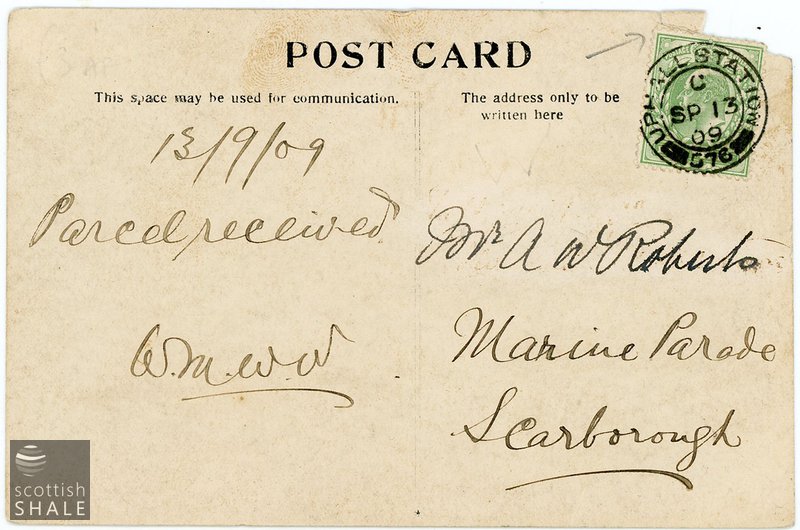 POST CARD
This space may be used for communication.
The address only to be
written here
13/9/09
Parcel received
W.M.W.W
Mr. A W Roberts
Marine Parade
Scarborough
UPHALL STATION
C
SP 13
09
576
scottish
SHALE